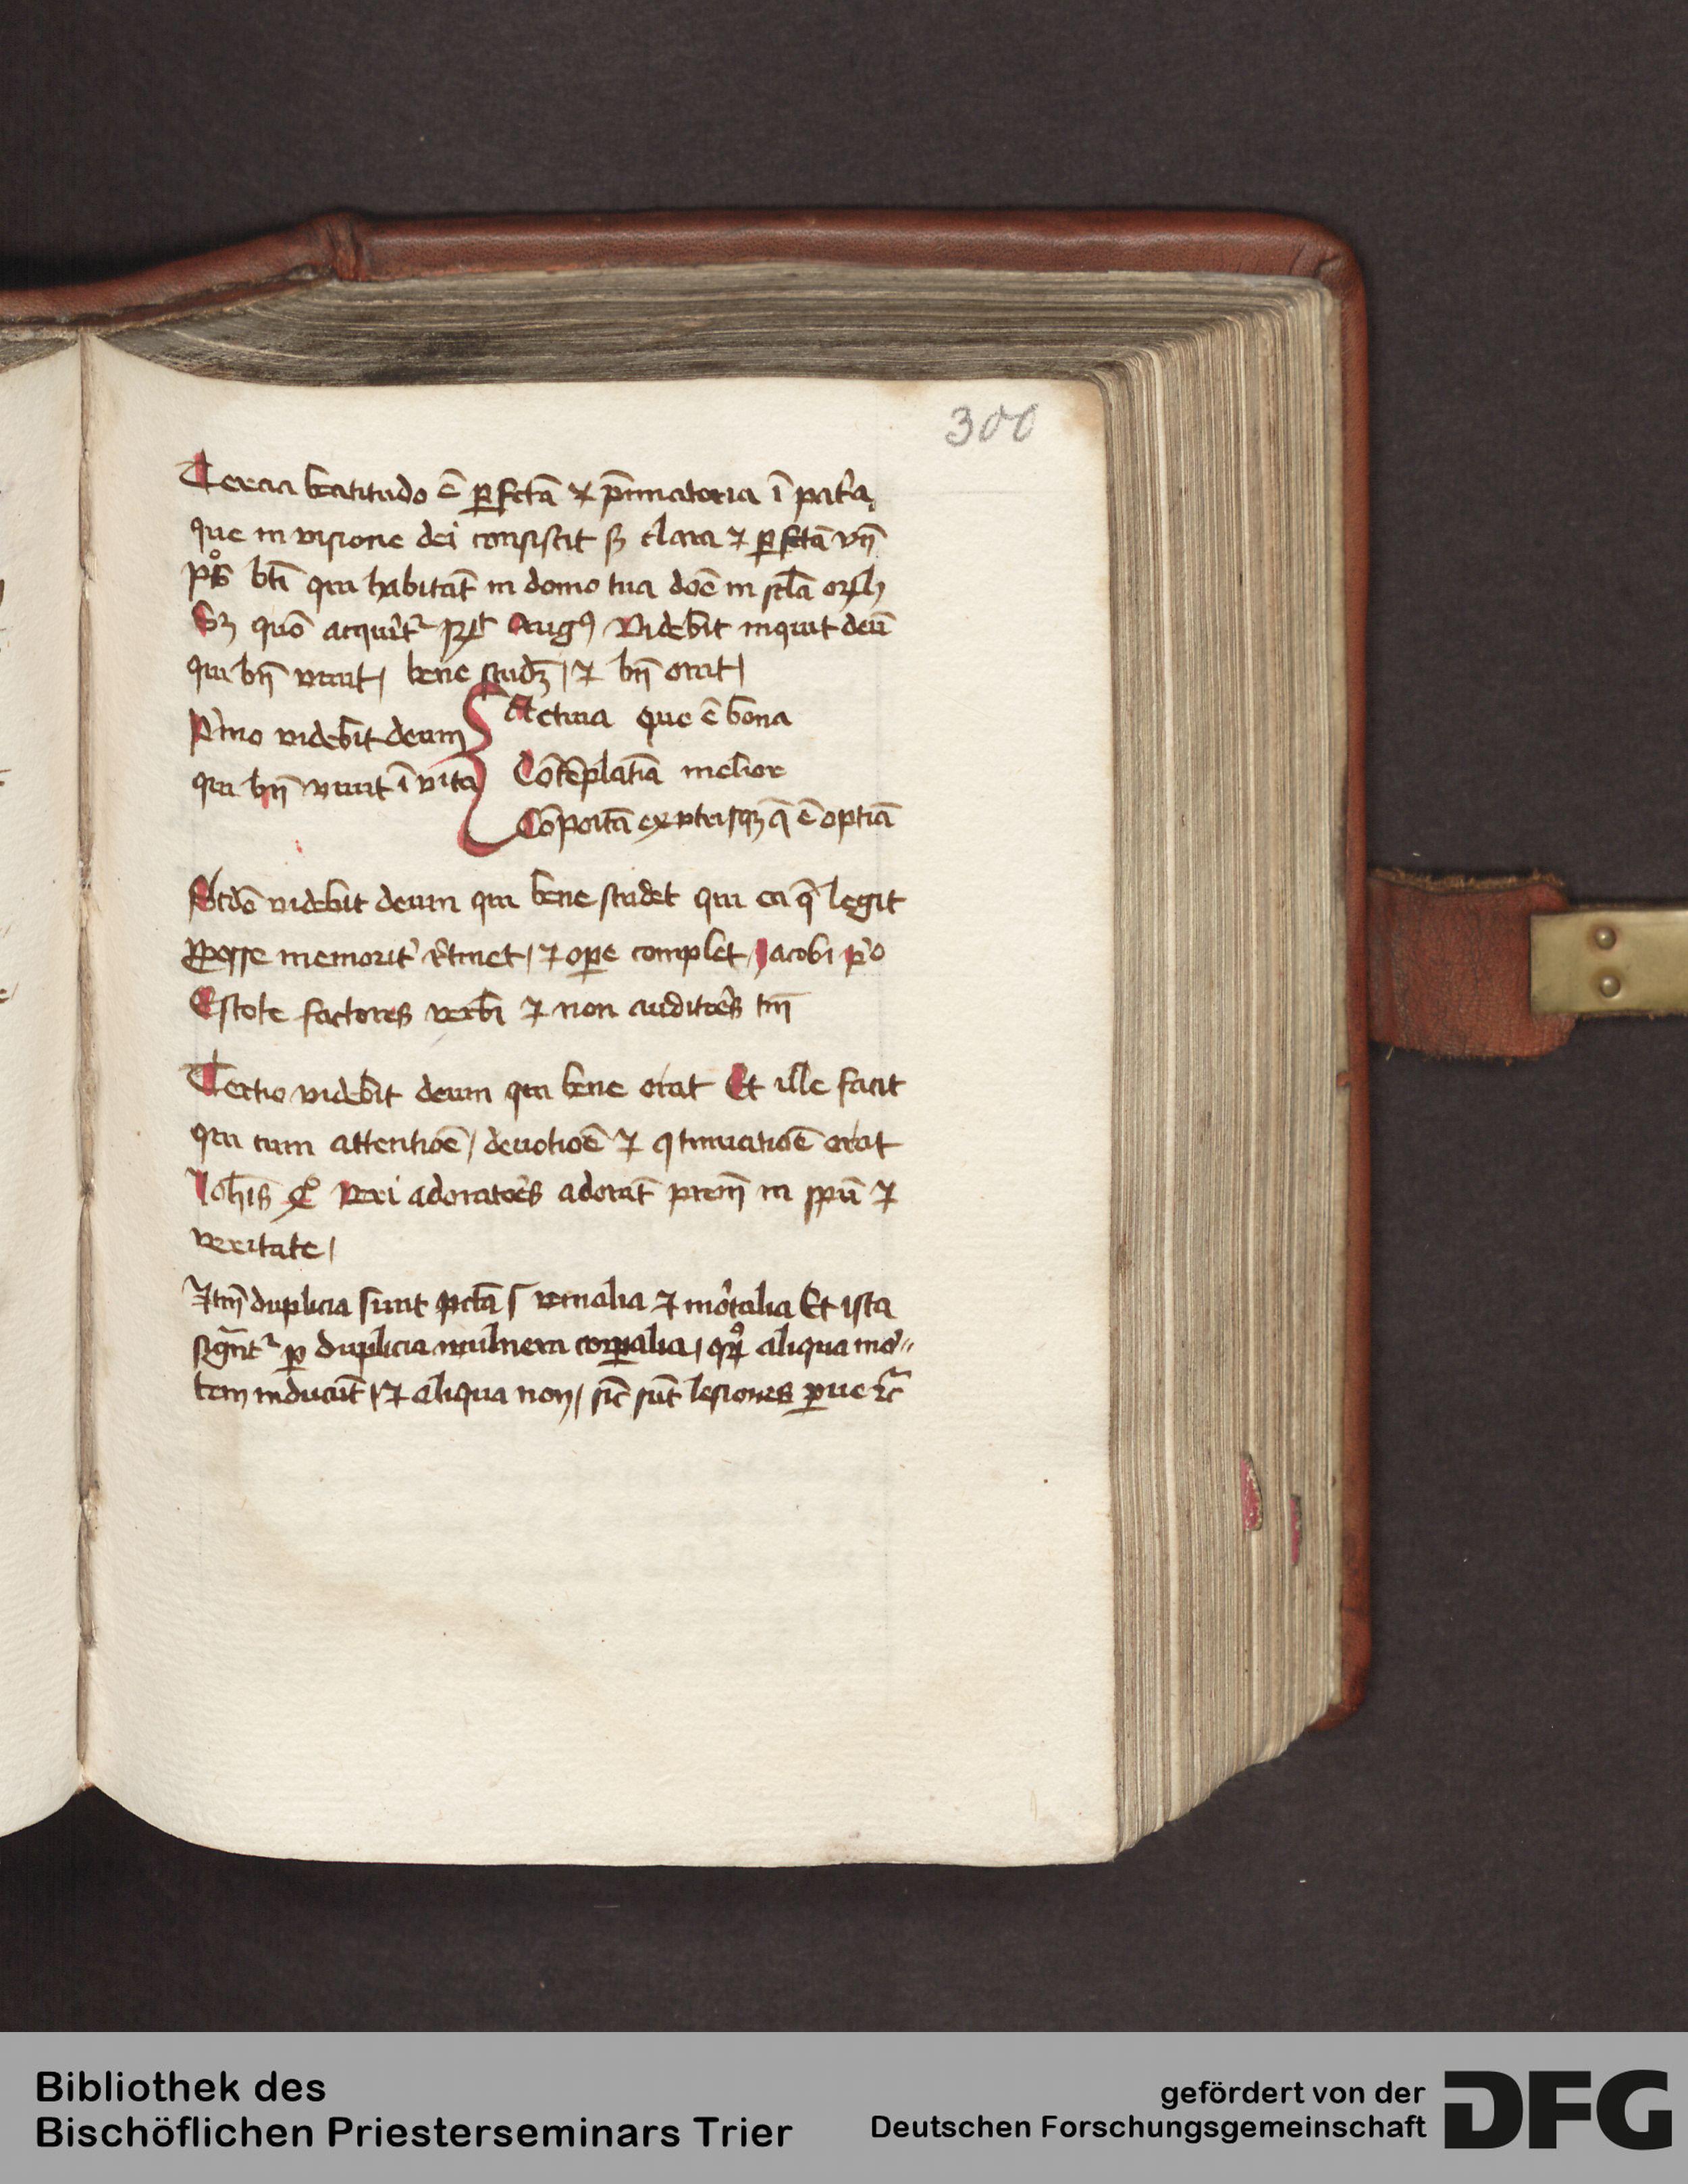 300
Tercia beatitudo ē ꝑfctā ⁊ p̄miatoria ī patͥa
que in visione dei consistit sꝫ clara ⁊ ꝑfctā vn̄
pͦs btī qui habitāt in domo tua doē in sclā
Sꝫ quō acquirit᷑ Augꝰ Videbit inquit deū
qui bn̄ viuit / bene studꝫ / ⁊ bn̄ orat /
Pͥmo videbit deum
qui bn̄ viuit ī vita
Actiua que ē bona
Cōtēplatīa melior
Cōpoitā ex vtrisqꝫ q̄ ē optīa
Scdō videbit deum qui bene studet qui ea q̄ legit
memoritͥ rͥtinet / ⁊ oꝑe complet / Jacobi pͥo
Estote factores verbi ⁊ non auditoēs tm̄
Tertio videbit deum qui bene orat Et ille facit
qui cum attentioē / deuotioē ⁊ ꝯtinuatioē orat
Joh̄is 4ͦ veri adoratoēs adorāt prem̄ in spū ⁊
veritate /
Itm̄ duplicia sunt pctā s venialia ⁊ moͬtalia Et ista
sign̄t᷑ ꝑ duplicia wulnera corꝑalia / qꝝ aliqua moͬ〃
tem inducūt / ⁊ aliqua non / sīc sūt lesiones ꝑue ⁊c̄
Bibliothek des
Bischöflichen Priesterseminars Trier
gefördert von der
Deutschen Forschungsgemeinschaft
DFG